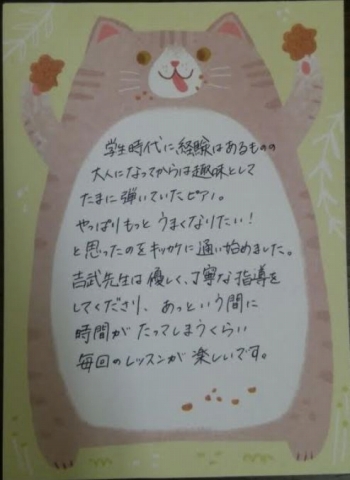 学生時代に、経験はあるものの
大人になってからは趣味として
たまに弾いていたピアノ。
やっぱりもっと うまくなりたい！
と思ったのをキッカケに通い始めました。
吉武先生は優しく、丁寧な指導を
してくださり、あっという間に
時間がたってしまうくらい
毎回のレッスンが楽しいです。